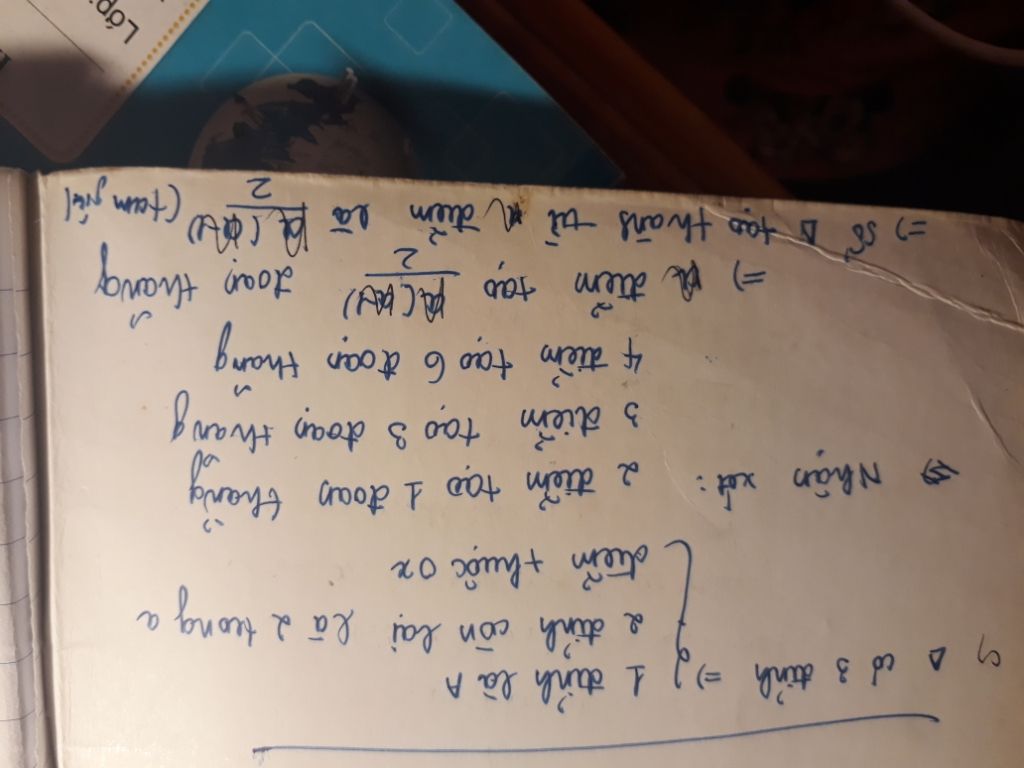 c) Δ có 3 đỉnh => { 1 đỉnh là A
2 đỉnh còn lại là 2 trong a
điểm thuộc Ox
=> Nhận xét: 2 điểm tạo 1 đoạn thẳng
3 điểm tạo 3 đoạn thẳng
4 điểm tạo 6 đoạn thẳng
=> điểm tạo 2 đoạn thẳng
=> Số Δ tạo thành từ điểm là 2 (tam giác)
Lớp: